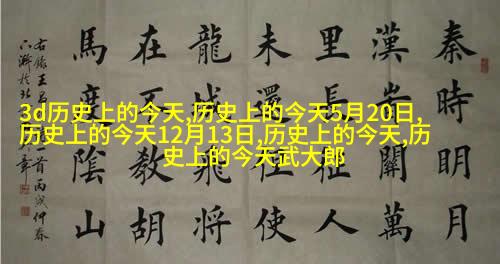 3d历史上的今天,历史上的今天5月20日,
历史上的今天12月13日,历史上的今天,历
史上的今天武大郎
秦時明月
漢關萬
里長征人
未還但使
龍城飛將
在不教胡
馬度陰山
右錄王首丙戌仲春